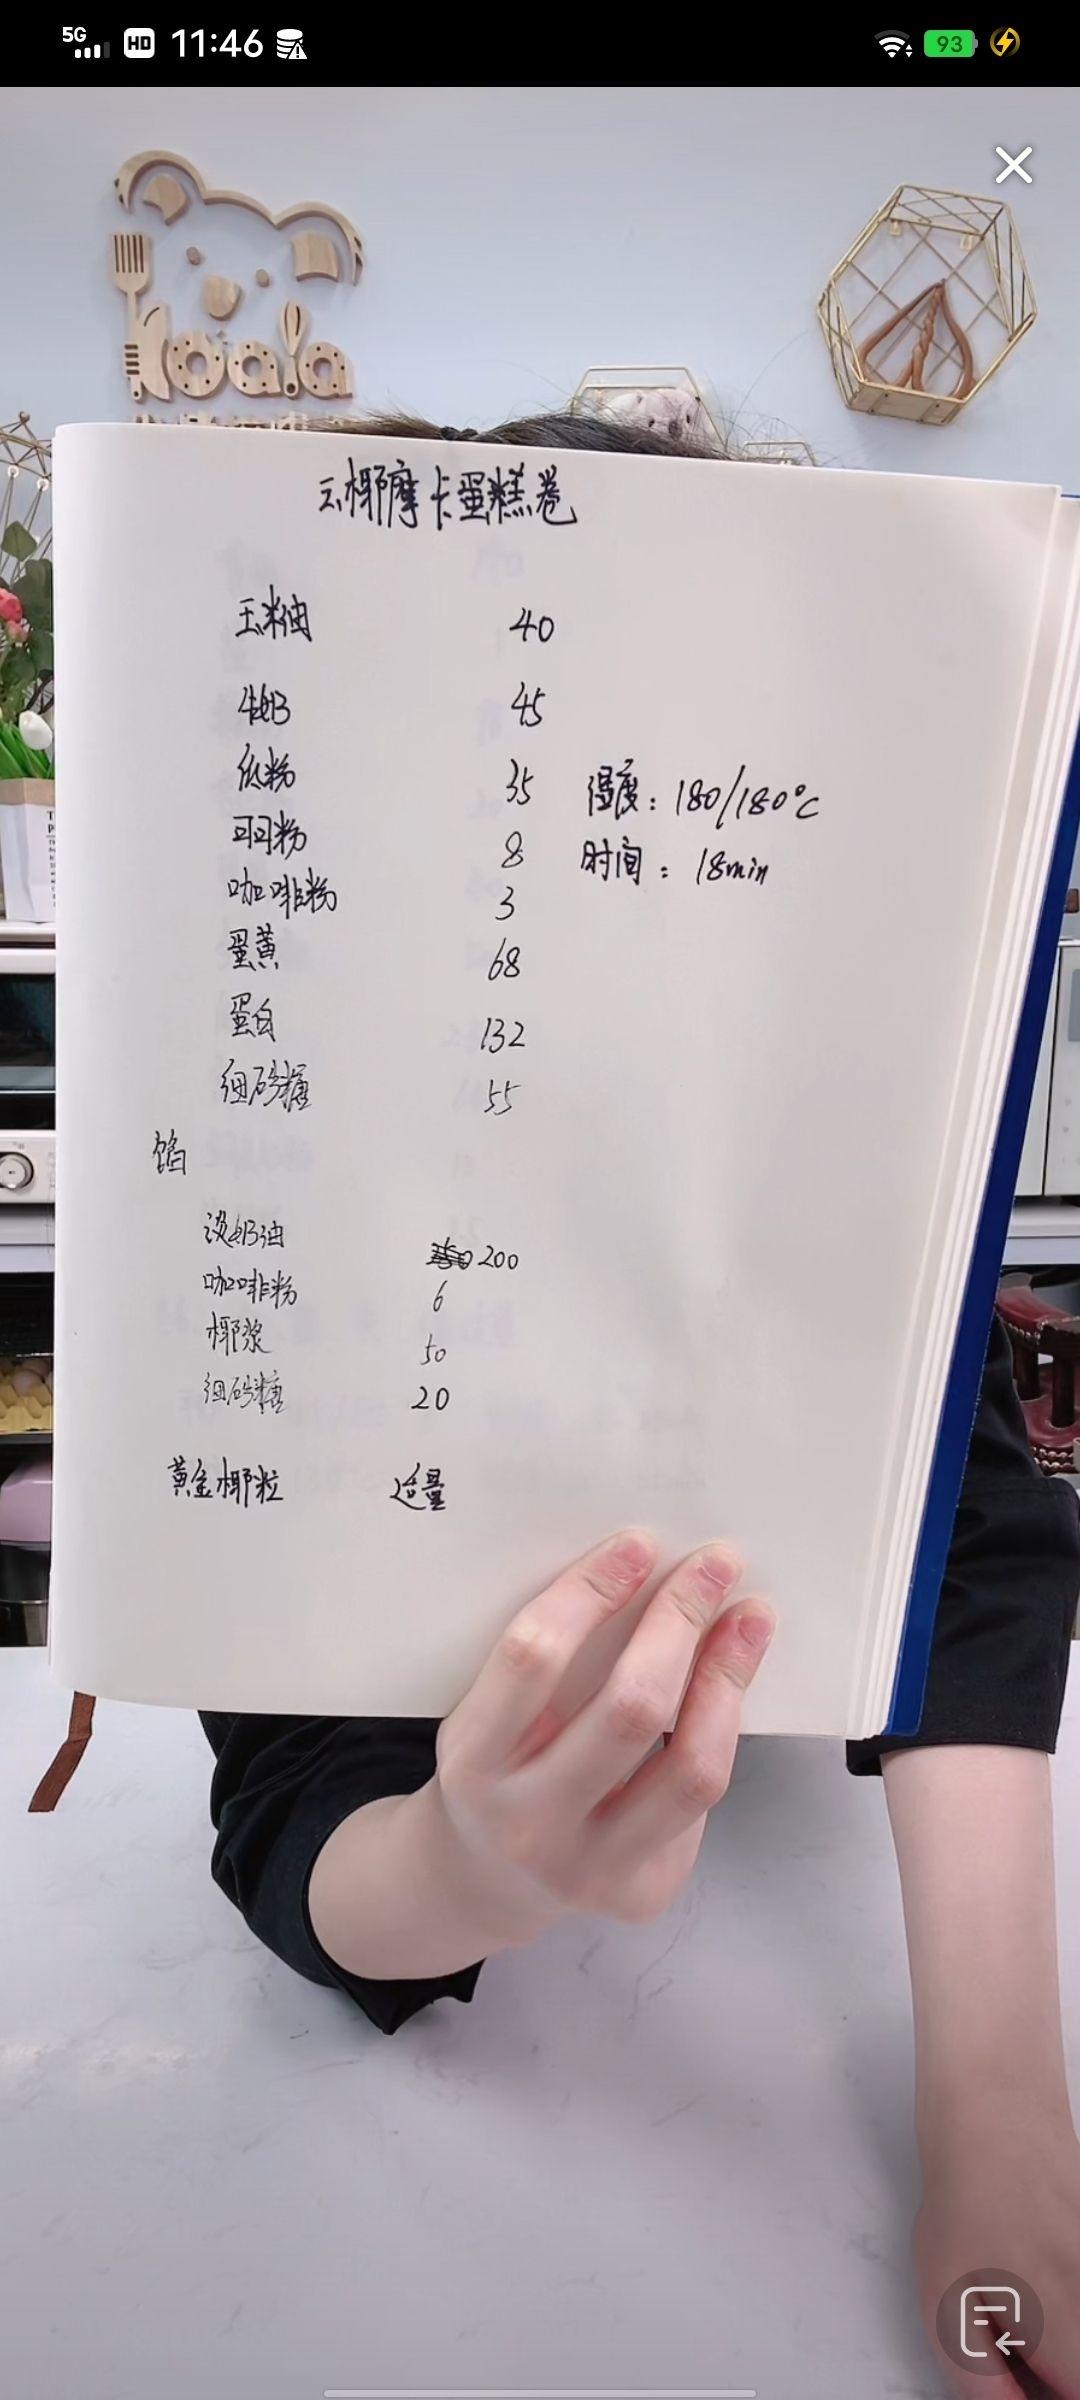 5G HD 11:46 93
koala
云椰摩卡蛋糕卷
玉米油 40
牛奶 45
低粉 35
可可粉 8
咖啡粉 3
蛋黄 68
蛋白 132
细砂糖 55
温度：180/180℃
时间：18min
馅
淡奶油 200
咖啡粉 6
椰浆 50
细砂糖 20
黄金椰粒 适量